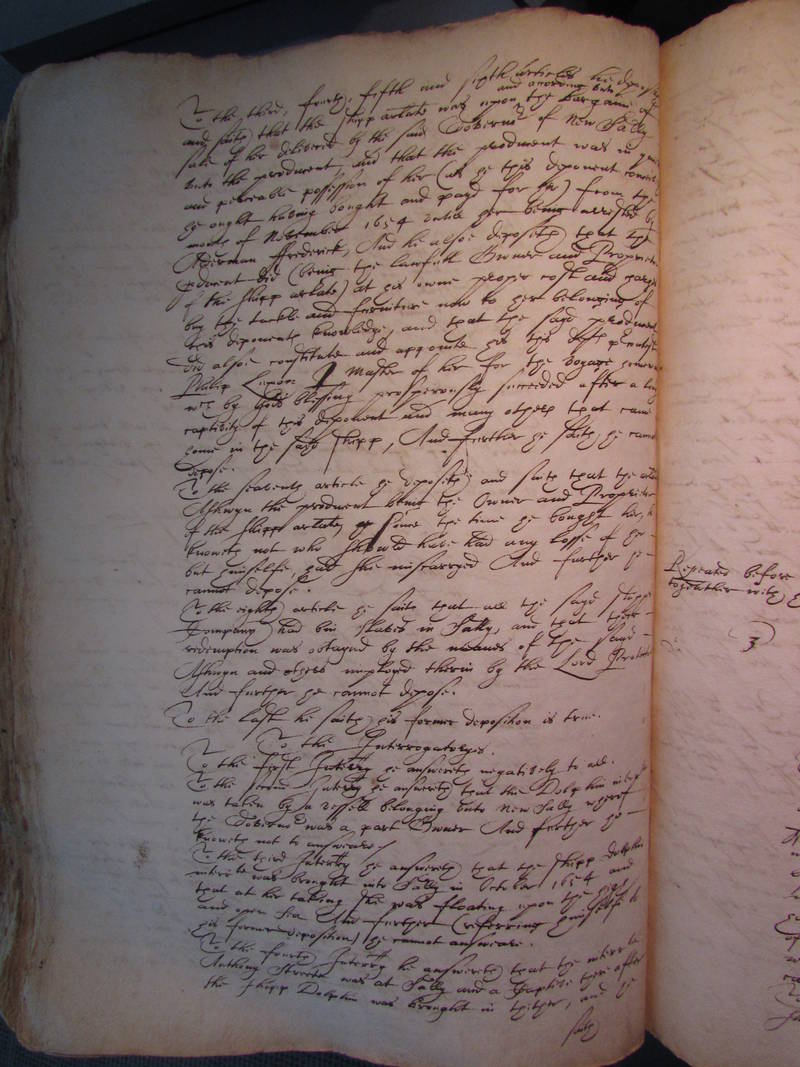 To the third, fourth, fifth and sixth articles hee deposeth
and saith that the shipp arlate was upon the bargaine of
and according unto
sale of her delivered by the said Governor of New Sally
unto the producent, and that the producent was in
and peceable possession of her (as hee this deponent
hee ought having bought and payd for her) from the
moneth of November 1654 untill her being arrested by
Alderman ffrederick, And hee alsoe deposeth that the
producent did (being the lawfull Owner and Proprietor
of the shipp arlate) at his owne proper cost and charges
buy the tackle and furniture now to her belonging of
this deponents knowledge, and that the sayd producent
did alsoe constitute and appointe his this dept
Philip Lemon Master of her for the voyage
wch by Gods blessing prosperously succeeded after a long
captivity of this deponent and many others that came
home in the said shipp, And further hee saith hee cannot
depose.
To the seaventh article hee deposeth and saith that the arlate
Mhwyn the producent being the Owner and Proprietor
of the shipp arlate, since the time hee bought her, hee
knoweth not who should have had any losse of her
but himselfe, had shee miscarryed And further hee
cannot depose.
To the eighth article hee saith that all the sayd shipps
Company had bin slaves in Sally, and that their
redemption was obtayned by the meanes of the sayd
Mhwyn and others employed therin by the Lord Protector
And further hee cannot depose.
To the last hee saith his former deposition is true.
To the Interrogatoryes.
To the first Interry hee answereth negatively to all.
To the second Interry hee answereth that the Dolphin
was taken by a vessell belonging unto New Sally wherof
the Governor was a part Owner And further hee
knoweth not to answeare.
To the third Interry hee answereth that the shipp Dolphin
interrte was brought into Sally in October 1654 and
that at her taking shee was floating upon the high
and open sea And further (referring himselfe to
his former deposition) hee cannot answeare.
To the fourth Interry hee answereth that the interrte
Anthony Streete was at Sally and a Captive there after
the shipp Dolphin was brought in thither, and hee
saith
Repeated before
together with
3